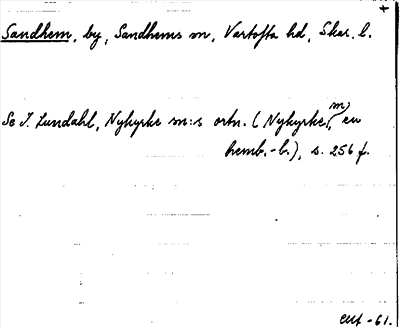 +
Sandhem, by, Sandhems sn, Vartofta hd, Skar. l.
Se I. Lundahl, Nykyrke sn:s ortn. (Nykyrke, en
hemb.-b.), s. 256 f.
-61.